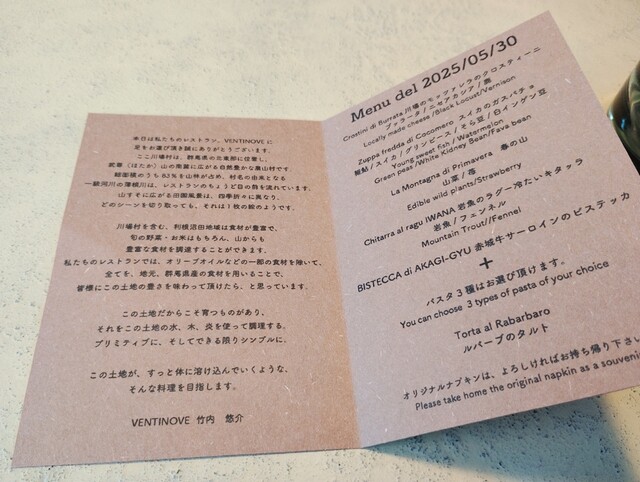 本日は私たちのレストラン、VENTINOVEに
足をお運び頂き誠にありがとうございます。
ここ川場村は、群馬県の北東部に位置し、
武尊(ほたか)山の南麓に広がる自然豊かな農山村です。
総面積のうち83%を山林が占め、村名の由来となる
一級河川の薄根川は、レストランのちょうど目の前を流れています。
山すそに広がる田園風景は、四季折々に異なり、
どのシーンを切り取っても、それは1枚の絵のようです。
川場村を含む、利根沼田地域は食材が豊富で、
旬の野菜・お米はもちろん、山からも
豊富な食材を調達することができます。
私たちのレストランでは、オリーブオイルなどの一部の食材を除いて、
全てを、地元、群馬県産の食材を用いることで、
皆様にこの土地の豊さを味わって頂けたら、と思っています。
この土地だからこそ育つものがあり、
それをこの土地の水、木、炎を使って調理する。
プリミティブに、そしてできる限りシンプルに。
この土地が、すっと体に溶け込んでいくような、
そんな料理を目指します。
VENTINOVE 竹内 悠介
Menu del 2025/05/30
Crostini di Burrata 川場のモッツァレラのクロスティーニ
ブッラータ/ニセアカシア/鹿
Locelly made cheese/Black Locust/Vernison
Zuppe fredda di Cocomero スイカのガスパチョ
稚鮎/スイカ/グリンピース/そら豆/白インゲン豆
Young sweet fish/Watermelon
Green peas/White Kidney Bean/Fava bean
La Montagna di Primavera 春の山
山菜/苺
Edible wild plants/Strawberry
Chitarra al ragu IWANA 岩魚のラグー冷たいキタッラ
岩魚/フェンネル
Mountain Trout//Fennel
BISTECCA di AKAGI-GYU 赤城牛サーロインのビステッカ
+
パスタ3種はお選び頂けます。
You can choose 3 types of pasta of your choice
Torta al Rabarbaro
ルバーブのタルト
オリジナルナプキンは、よろしければお持ち帰り下さい
Please take home the original napkin as a souvenir